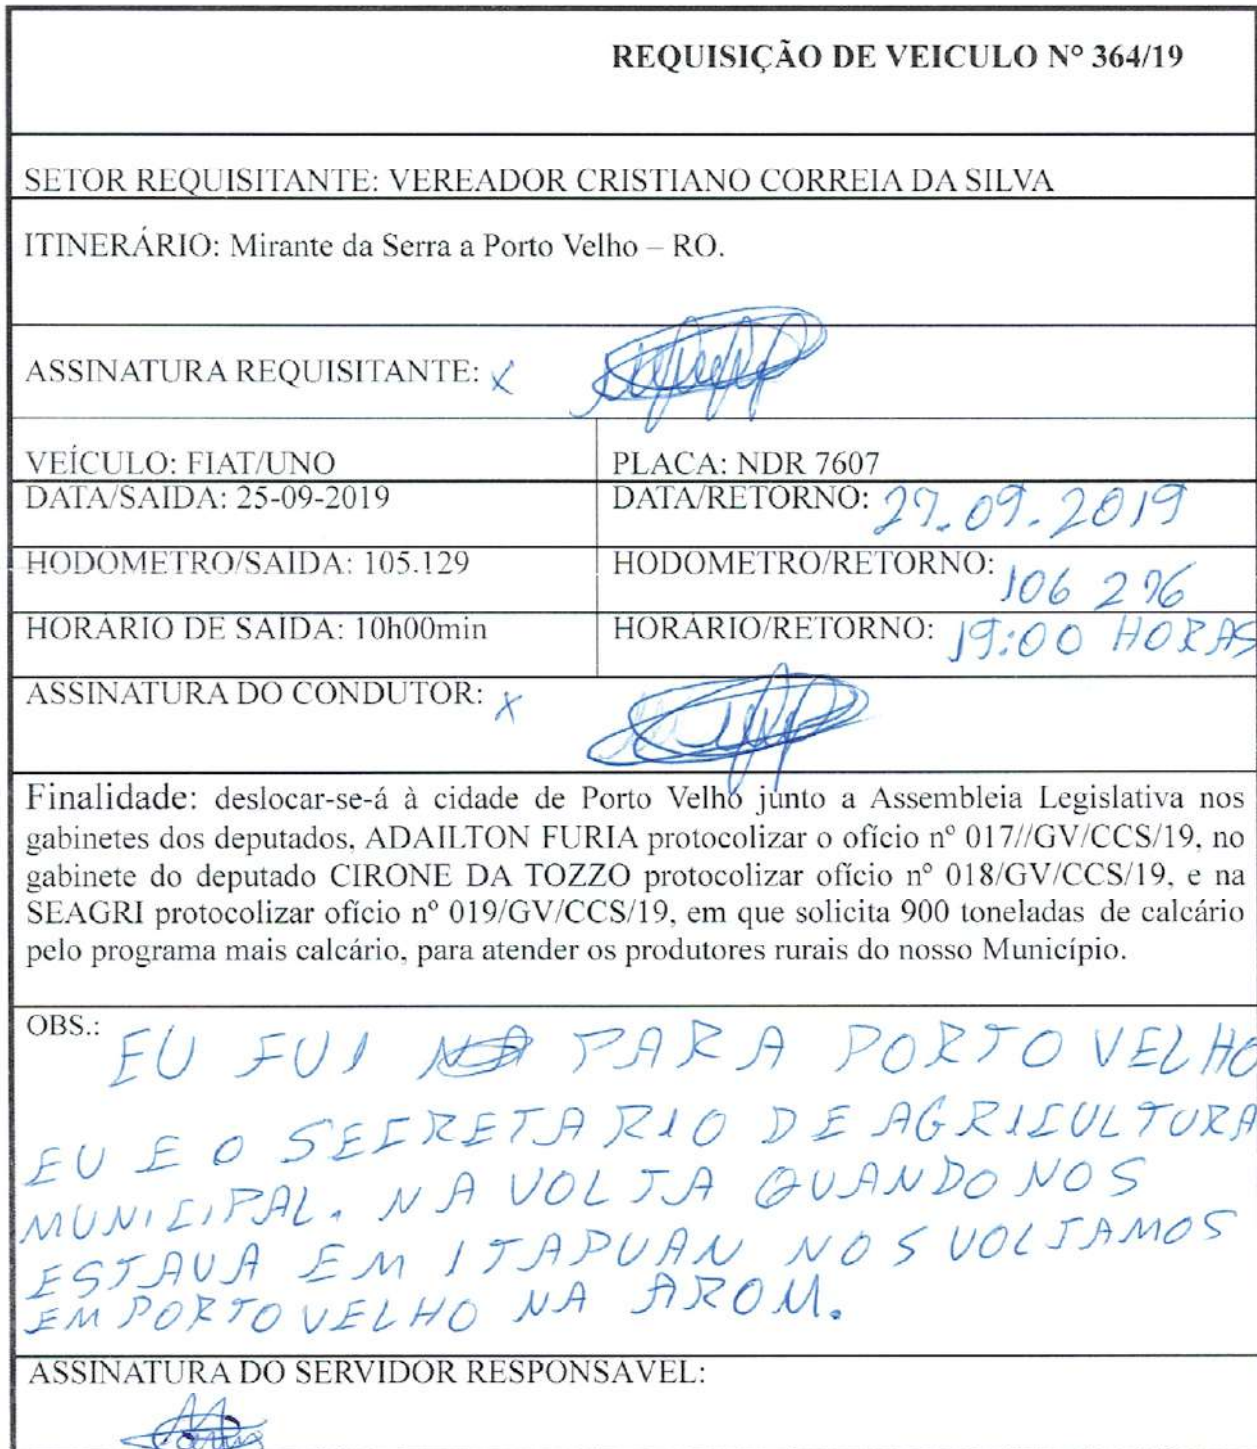 REQUISIÇÃO DE VEICULO Nº 364/19
SETOR REQUISITANTE: VEREADOR CRISTIANO CORREIA DA SILVA
ITINERÁRIO: Mirante da Serra a Porto Velho – RO.
ASSINATURA REQUISITANTE: X
VEÍCULO: FIAT/UNO
PLACA: NDR 7607
DATA/SAIDA: 25-09-2019
DATA/RETORNO: 27.09.2019
HODOMETRO/SAIDA: 105.129
HODOMETRO/RETORNO: 106 276
HORÁRIO DE SAIDA: 10h00min
HORÁRIO/RETORNO: 19:00 HORAS
ASSINATURA DO CONDUTOR: X
Finalidade: deslocar-se-á à cidade de Porto Velho junto a Assembleia Legislativa nos
gabinetes dos deputados, ADAILTON FURIA protocolizar o ofício nº 017//GV/CCS/19, no
gabinete do deputado CIRONE DA TOZZO protocolizar ofício nº 018/GV/CCS/19, e na
SEAGRI protocolizar ofício nº 019/GV/CCS/19, em que solicita 900 toneladas de calcário
pelo programa mais calcário, para atender os produtores rurais do nosso Município.
OBS.: EU FUI PARA PORTO VELHO
EU E O SECRETARIO DE AGRICULTURA
MUNICIPAL. NA VOLTA QUANDO NOS
ESTAVA EM ITAPUAN NOS VOLTAMOS
EM PORTO VELHO NA AROM.
ASSINATURA DO SERVIDOR RESPONSAVEL: